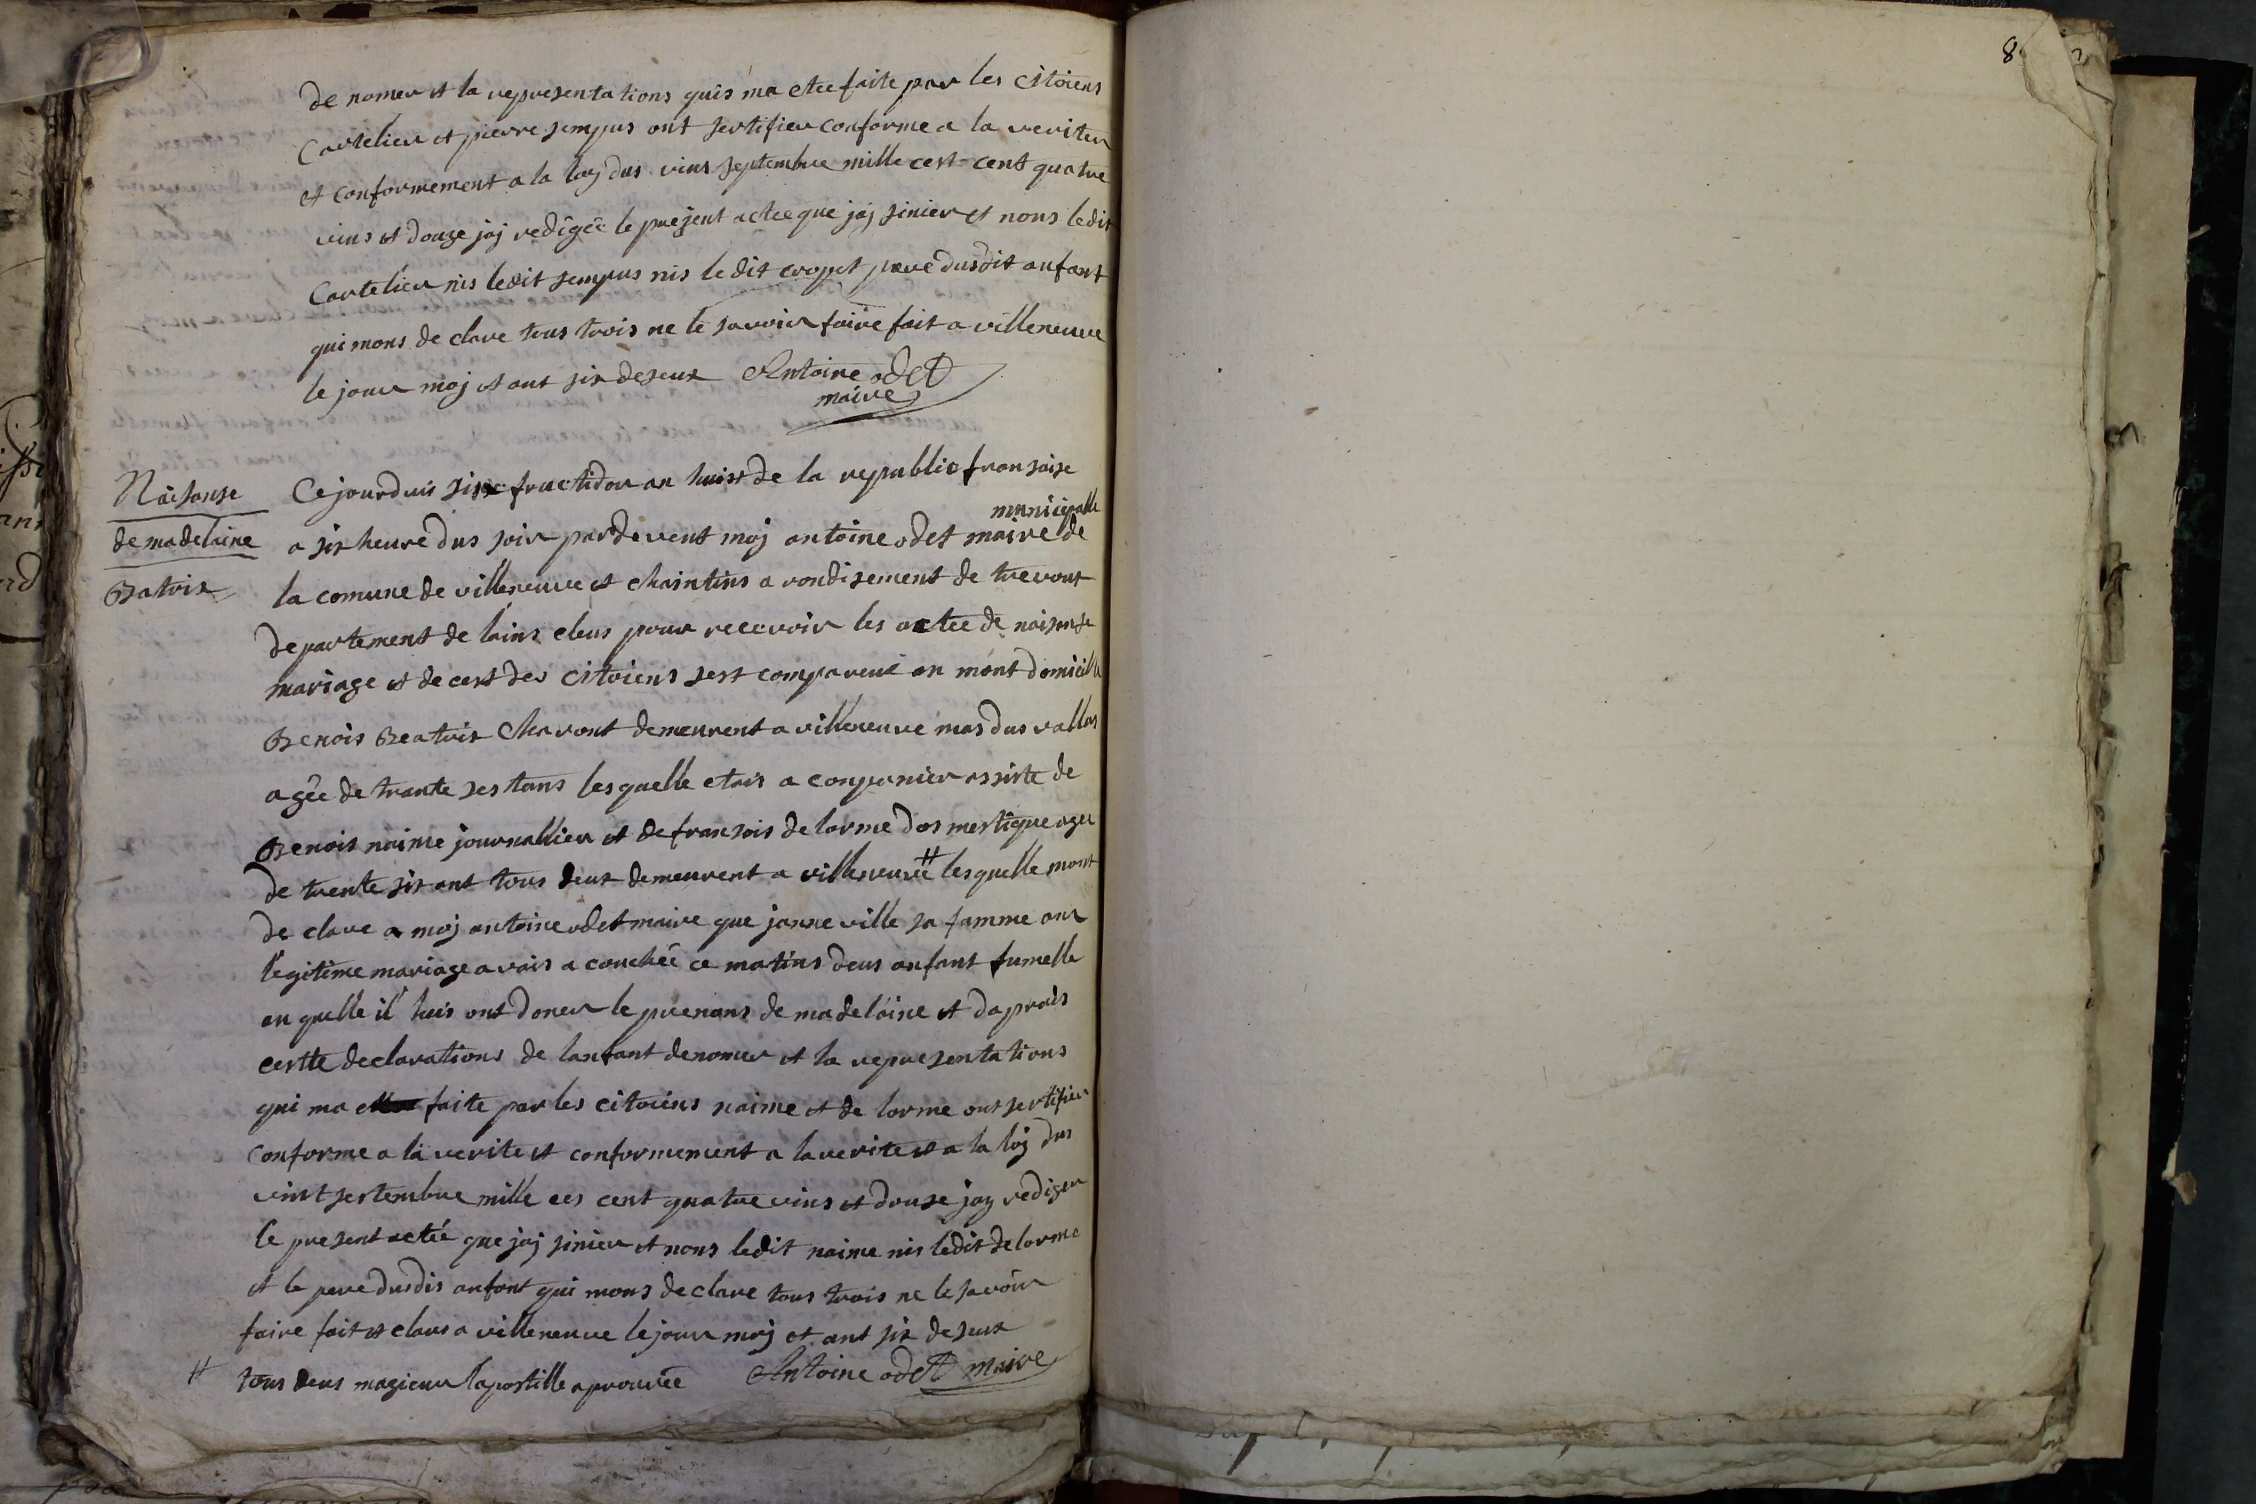 8
de nomer et la representations quis ma etee faite par les citoiens
Cartelier et pierre sempus ont sertifier conforme a la veriter
et conformement a la loy dus vins septembre mille cest-cent quatre
vins et douze jaj redigée le present actee que jaj sinier et nons ledit
Cartelier nis ledit sempus nis le dit cropet pere dusdit anfant
qui mons de clare tous trois ne le savoir faire fait a villeneuve
le jour moj et ant six deseux Antoine odet
maire
Naisanse
de madelaine
Batrix
Ce jourduis six fructidor an huist de la republic fransaise
municipalle
a six heure dus soir pardevent moj antoine odet maire de
la comune de villeneuve et chaintins a rondisement de trevout
departement de lains eleus pour recevoir les actee de naisanse
mariage et de cest des citoiens sest compareut an mont domicille
Benois Beatrix charont demeurent a villeneuve mas dus vallas
agée de trante sest ans lesquelle etais a conpanier assiste de
Benois naime journallier et de fransois de lorme dosmestique agee
de trente six ant tous deux demeurent a villeneuve # lesquelle mont
de clare a moj antoine odet maire que janne ville sa famme an
legitime mariage avais a couchée ce matins deus anfant fumelle
an quelle il luis ont doner le prenons de madelaine et daprais
cestte declarations de lanfant denomer et la representations
qui ma faite par les citoiens naime et de lorme ont sertifier
conforme a la verite et conformement a la verite et a la loj dus
vint sestembre mille ces cent quatre vins et douse jay rediger
le present actée que jaj sinier et nons ledit naime nis ledit de lorme
et le pere dusdis anfant qui mons declare tous trois ne le savoir
faire fait et claus a villeneuve le jour moj et ant six deseux
# tous deus magieur lapostille aprouvée Antoine odet maire